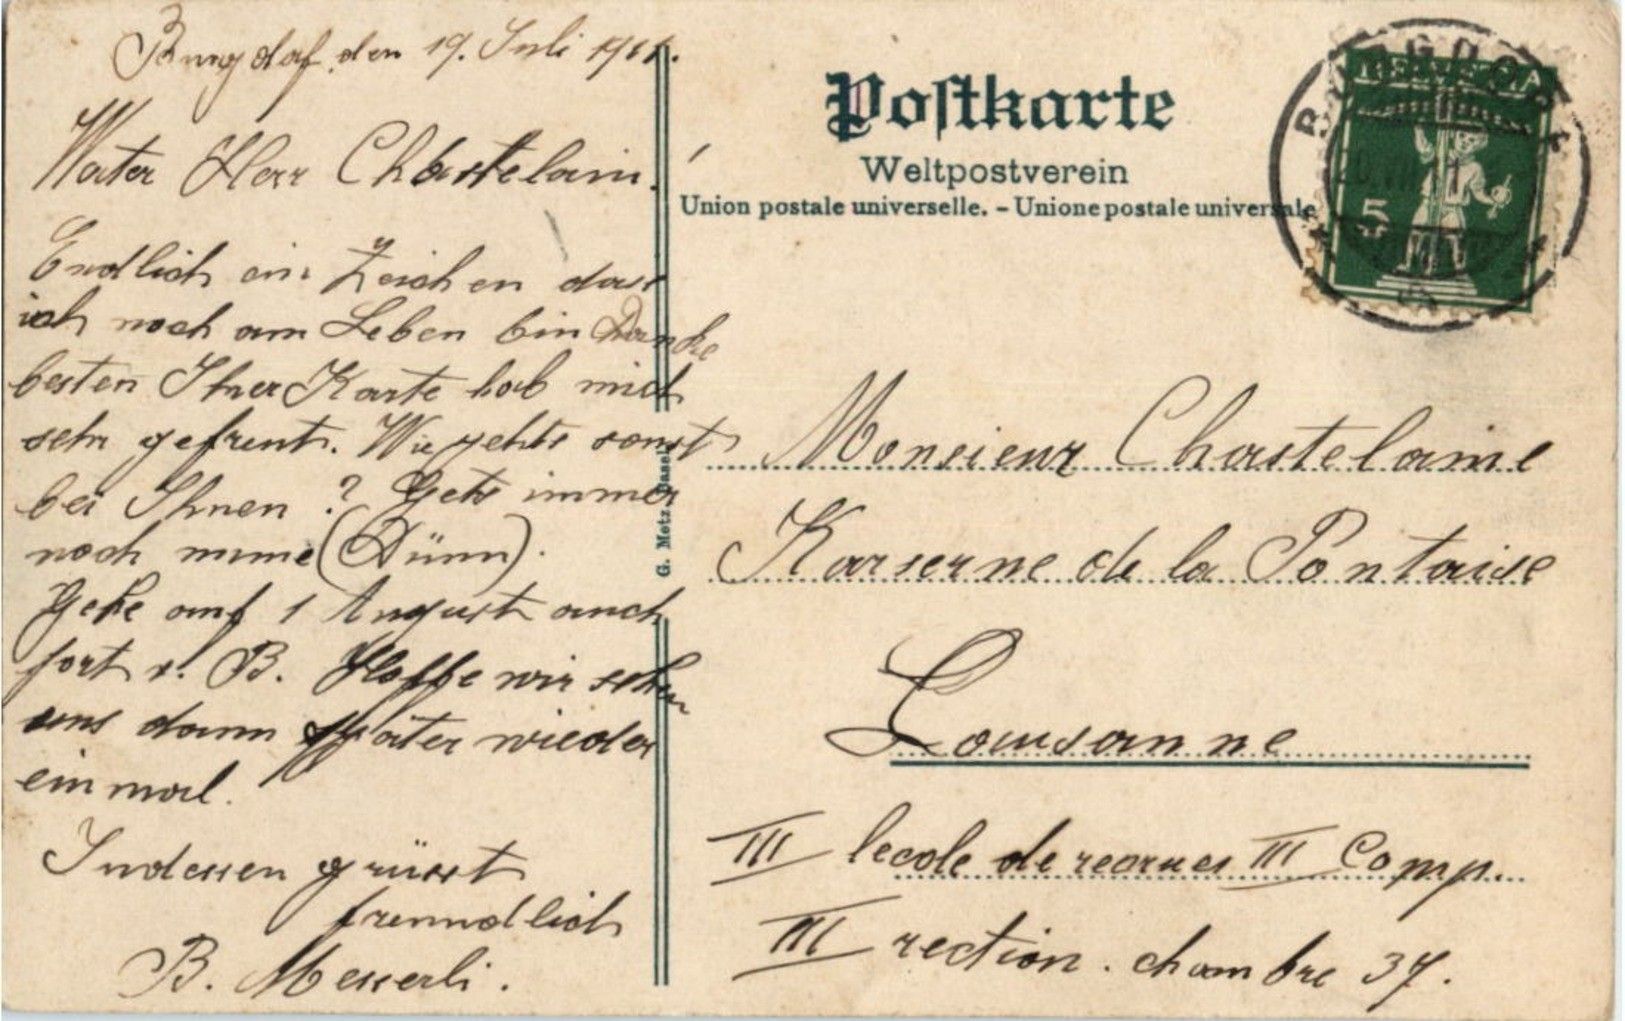 Burgdorf, den 19. Juli 1911.
Werter Herr Chastelain!
Endlich ein Zeichen dass
ich noch am Leben bin Danke
besten Ihrer Karte hab mich
sehr gefreut. Wie gehts sonst
bei Ihnen? Gehts immer
noch mime (Dünn).
Gehe auf 1 August auch
fort v. B. Hoffe wir sehen
uns dann später wieder
einmal.
Indessen grüsst
freundlich
B. Messerli.
Postkarte
Weltpostverein
Union postale universelle. - Unione postale universale
BURGDORF
HELVETIA
5
G. Metz, Basel
Monsieur Chastelaine
Kaserne de la Pontaise
Lausanne
III lecole de recrues III Comp.
III section. chambre 37.